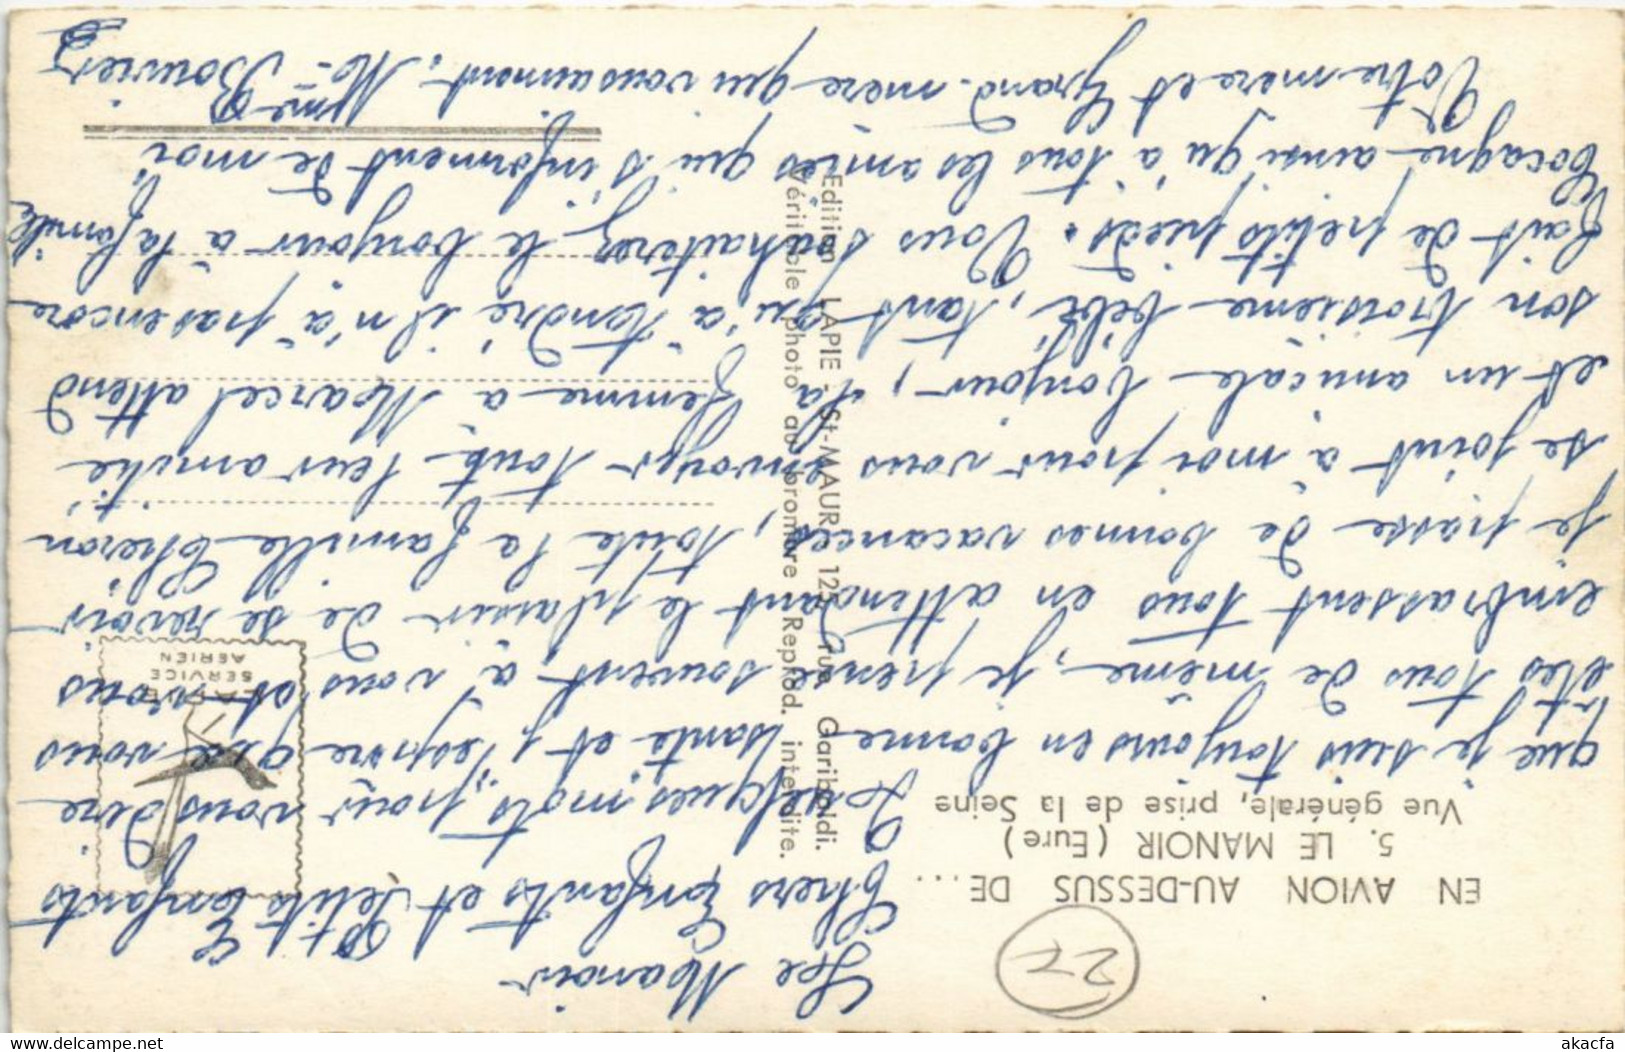 EN AVION AU-DESSUS DE...
5. LE MANOIR (Eure)
Vue générale, prise de la Seine
27
Le Manoir
Chers Enfants et Petits Enfants
Quelques mots, pour vous dire
que je suis toujours en bonne santé et j'espère que vous
êtes tous de même, je pense souvent à vous et vous
embrassent tous en attendant le plaisir de se revoir
je passe de bonnes vacances, toute la famille Cheron
se joint à moi pour vous envoyer toute leur amitié
et un amicale bonjour, la femme à Marcel attend
son troisieme bébé, tant qu'a André il n'a pas encore
fait de petits pieds. Vous souhaiterez le bonjour à la famille
Cocagne ainsi qu'à tous les amies qui s'informent de moi
Votre mere et Grand-mère qui vous aiment. Me Bouviez
Edition LAPIE - St-MAUR, 125, rue Garibaldi.
Véritable photo au bromure Reprod. interdite.
LAPIE
SERVICE
AERIEN
akacfa